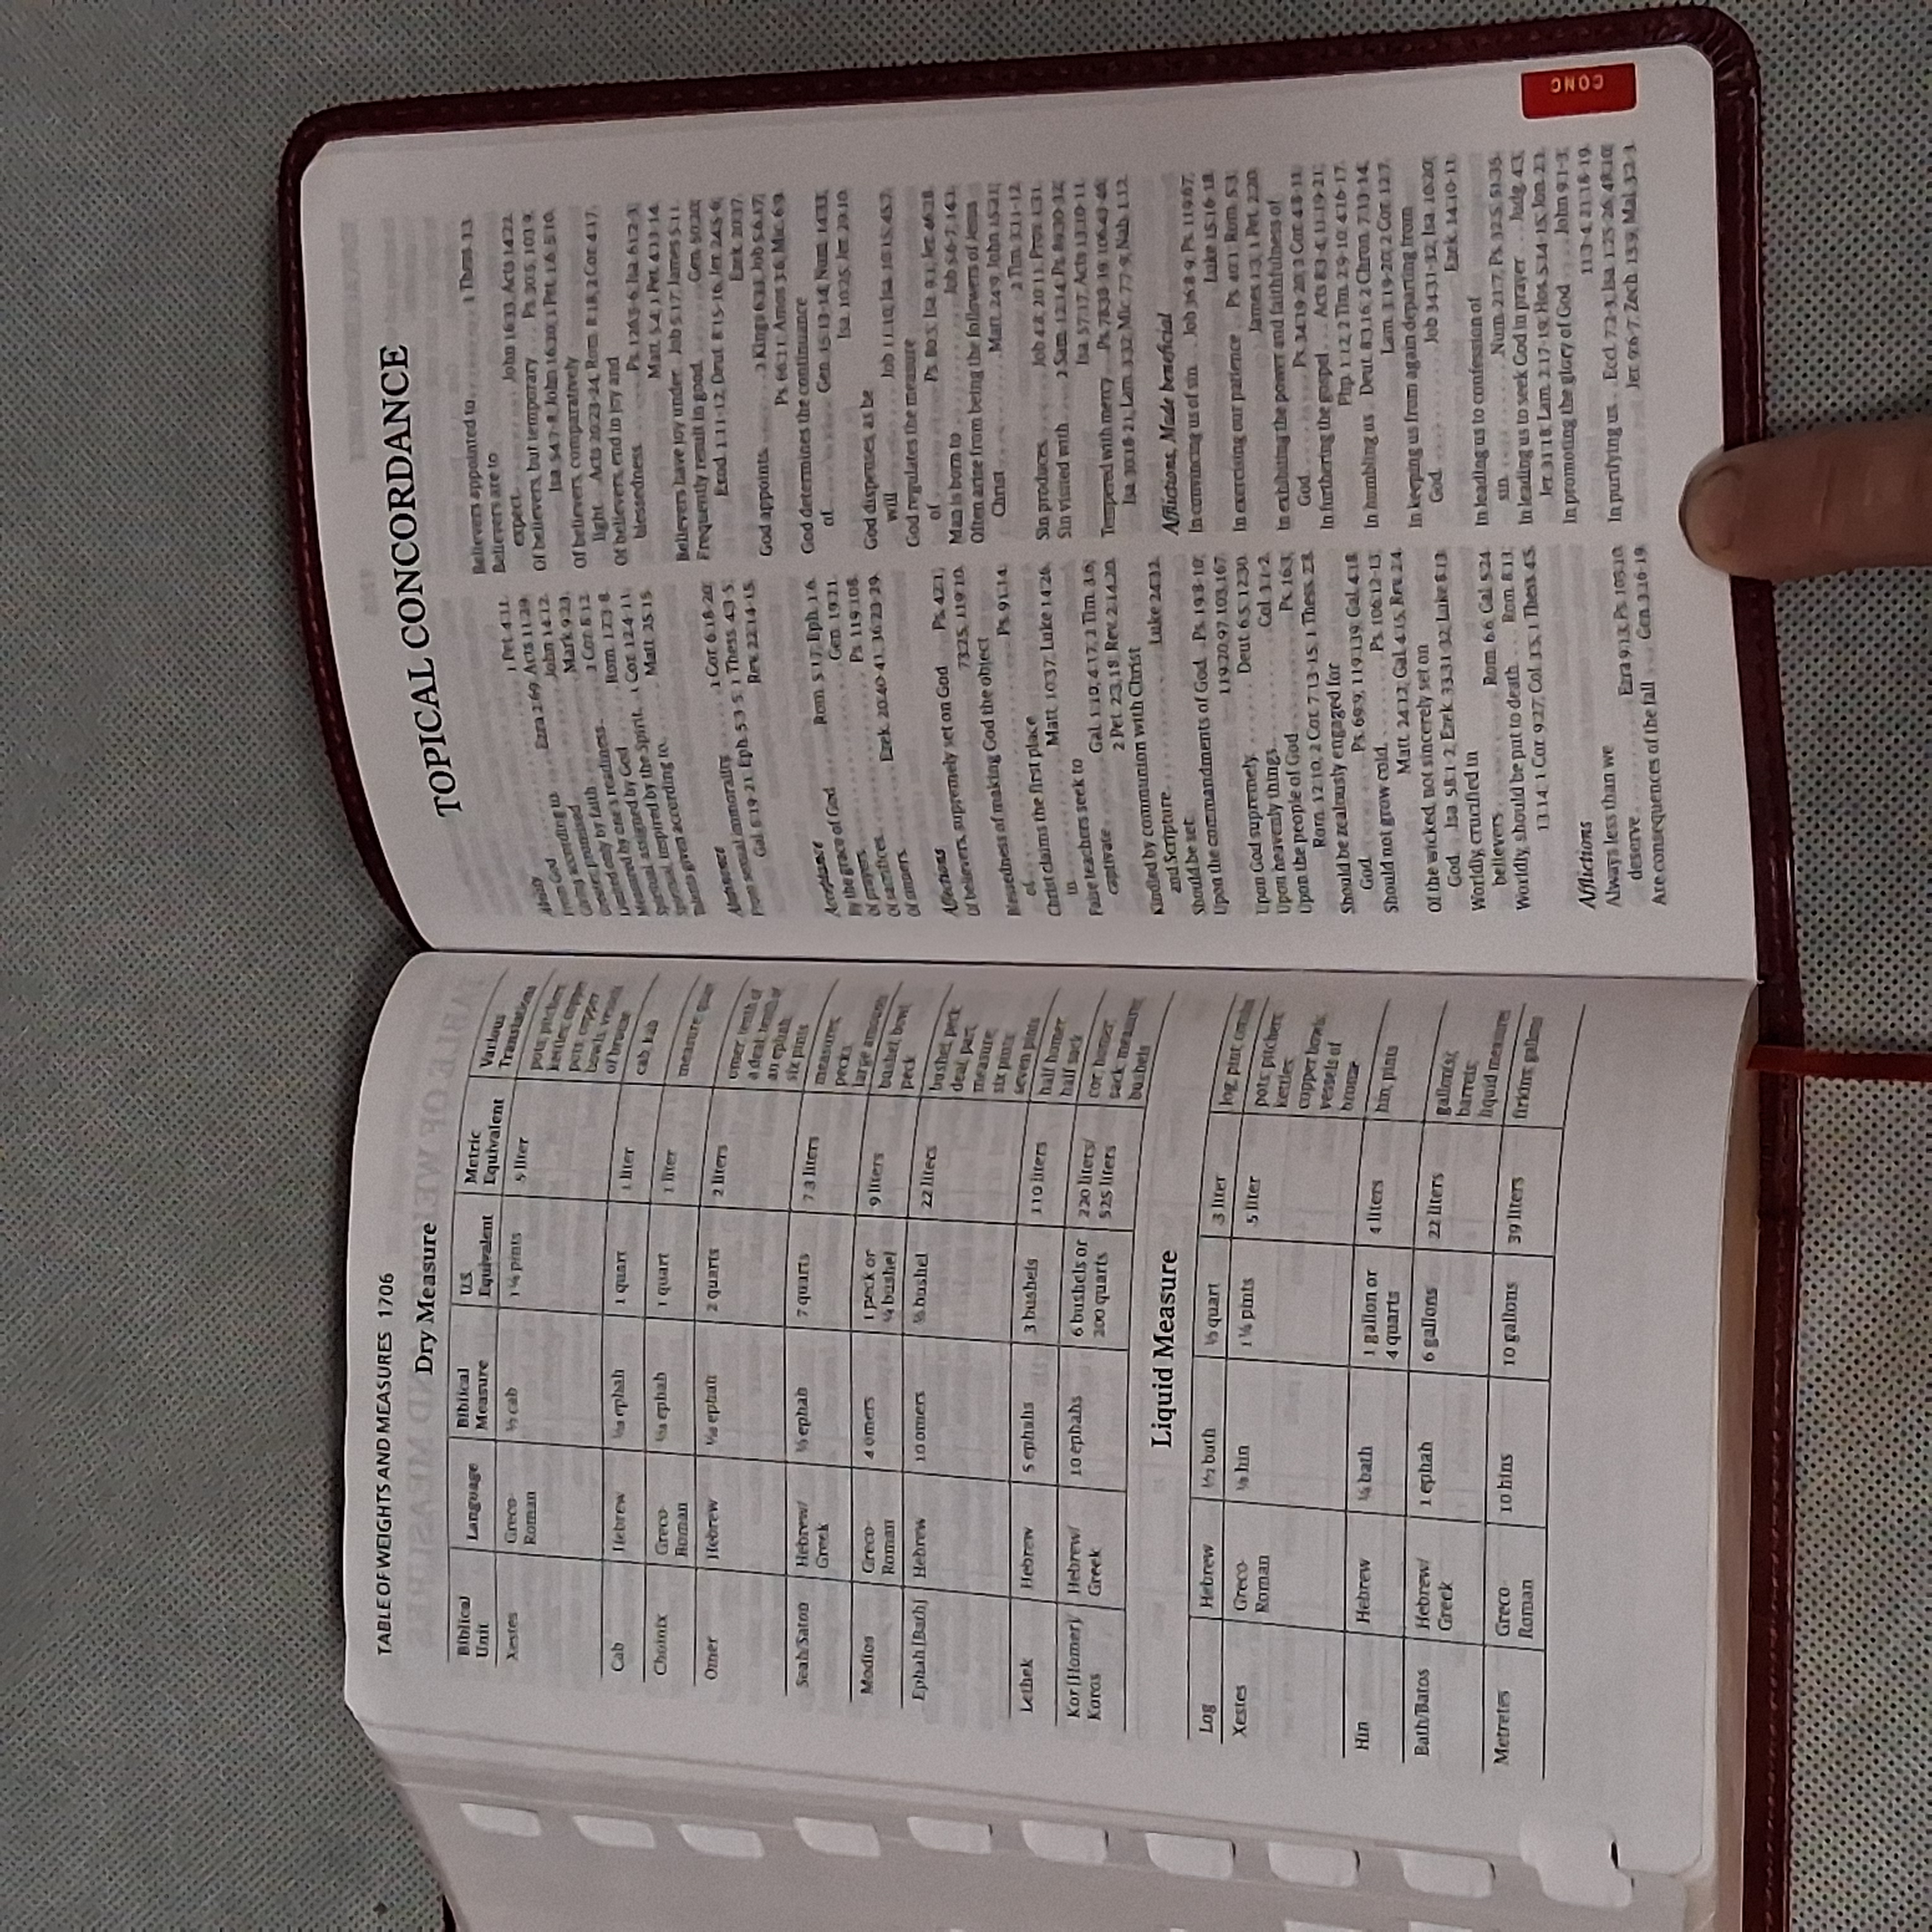 TABLE OF WEIGHTS AND MEASURES 1706
Dry Measure
Biblical Unit Language Biblical Measure U.S. Equivalent Metric Equivalent Various Translations
Xestes Greco-Roman ½ cab 1 pints .5 liter pots, pitchers, kettles, copper pots, copper bowls, vessels of bronze
Cab Hebrew ephah 1 quart 1 liter cab, kab
Choinix Greco-Roman ephah 1 quart 1 liter measure, quart
Omer Hebrew ephah 2 quarts 2 liters omer, tenth of a deal, tenth of an ephah, six pints
Seah/Saton Hebrew/Greek ⅓ ephah 7 quarts 7.3 liters measures, pecks, large amounts
Modios Greco-Roman 4 omers 1 peck or ¼ bushel 9 liters bushel, bowl, peck
Ephah [Bath] Hebrew 10 omers bushel 22 liters bushel, peck, deal, part, measure, six pints, seven pints
Lethek Hebrew 5 ephahs 3 bushels 110 liters half homer, half sack
Kor [Homer]/Koros Hebrew/Greek 10 ephahs 6 bushels or 200 quarts 220 liters/525 liters cor, homer, sack, measures, bushels
Liquid Measure
Log Hebrew bath ⅓ quart .3 liter log, pint, cotulus
Xestes Greco-Roman ⅛ hin 1 pints .5 liter pots, pitchers, kettles, copper bowls, vessels of bronze
Hin Hebrew ⅙ bath 1 gallon or 4 quarts 4 liters hin, pints
Bath/Batos Hebrew/Greek 1 ephah 6 gallons 22 liters gallon(s), barrels, liquid measures
Metretes Greco-Roman 10 hins 10 gallons 39 liters firkins, gallons
TOPICAL CONCORDANCE
Ability
From God 1 Pet. 4:11
Giving according to Ezra 2:69; Acts 11:29
promised John 14:12
only by faith Mark 9:23
Limited by one's readiness 2 Cor. 8:12
Measured by God Rom. 12:3-8
Spiritual, assigned by the Spirit 1 Cor. 12:4-11
Spiritual, inspired by
Talents given according to Matt. 25:15
Abstinence
From sexual immorality 1 Cor. 6:18-20;
Gal. 5:19-21; Eph. 5:3-5; 1 Thess. 4:3-5;
Rev. 22:14-15
Acceptance
By the grace of God Rom. 5:17; Eph. 1:6
Of prayers Gen. 19:21
Of sacrifices Ps. 119:108
Of sinners Ezek. 20:40-41; 36:23-29
Affections
Of believers, supremely set on God Ps. 42:1;
73:25; 119:10
Blessedness of making God the object
of Ps. 91:14
Christ claims the first place
in Matt. 10:37; Luke 14:26
False teachers seek to
captivate Gal. 1:10; 4:17; 2 Tim. 3:6;
2 Pet. 2:3, 18; Rev. 2:14, 20
Kindled by communion with Christ
and Scripture Luke 24:32
Should be set:
Upon the commandments of God Ps. 19:8-10;
119:20, 97, 103, 167
Upon God supremely Deut. 6:5; 12:30
Upon heavenly things Col. 3:1-2
Upon the people of God Ps. 16:3;
Rom. 12:10; 2 Cor. 7:13-15; 1 Thess. 2:8
Should be zealously engaged for
God Ps. 69:9; 119:139; Gal. 4:18
Should not grow cold Ps. 106:12-13;
Matt. 24:12; Gal. 4:15; Rev. 2:4
Of the wicked, not sincerely set on
God Isa. 58:1-2; Ezek. 33:31-32; Luke 8:13
Worldly, crucified in
believers Rom. 6:6; Gal. 5:24
Worldly, should be put to death Rom. 8:13;
13:14; 1 Cor. 9:27; Col. 3:5; 1 Thess. 4:5
Afflictions
Always less than we
deserve Ezra 9:13; Ps. 103:10
Are consequences of the fall Gen. 3:16-19
Believers appointed to 1 Thess. 3:3
Believers are to
expect John 16:33; Acts 14:22
Of believers, but temporary Ps. 30:5; 103:9;
Isa. 54:7-8; John 16:20; 1 Pet. 1:6; 5:10
Of believers, comparatively
light Acts 20:23-24; Rom. 8:18; 2 Cor. 4:17
Of believers, end in joy and
blessedness Ps. 126:5-6; Isa. 61:2-3;
Matt. 5:4; 1 Pet. 4:13-14
Believers have joy under Job 5:17; James 5:11
Frequently result in good Gen. 50:20;
Exod. 1:11-12; Deut. 8:15-16; Jer. 24:5-6;
Ezek. 20:37
God appoints 2 Kings 6:33; Job 5:6, 17;
Ps. 66:11; Amos 3:6; Mic. 6:9
God determines the continuance
of Gen. 15:13-14; Num. 14:33;
Isa. 10:25; Jer. 29:10
God dispenses, as he
will Job 11:10; Isa. 10:15; 45:7
God regulates the measure
of Ps. 80:5; Isa. 9:1; Jer. 46:28
Man is born to Job 5:6-7; 14:1
Often arise from being the followers of Jesus
Christ Matt. 24:9; John 15:21;
2 Tim. 3:11-12
Sin produces Job 4:8; 20:11; Prov. 1:31
Sin visited with 2 Sam. 12:14; Ps. 89:30-32;
Isa. 57:17; Acts 13:10-11
Tempered with mercy Ps. 78:38-39; 106:43-46;
Isa. 30:18-21; Lam. 3:32; Mic. 7:7-9; Nah. 1:12
Afflictions, Made beneficial
In convincing us of sin Job 36:8-9; Ps. 119:67;
Luke 15:16-18
In exercising our patience Ps. 40:1; Rom. 5:3;
James 1:3; 1 Pet. 2:20
In exhibiting the power and faithfulness of
God Ps. 34:19-20; 2 Cor. 4:8-11
In furthering the gospel Acts 8:3-4; 11:19-21;
Php. 1:12; 2 Tim. 2:9-10; 4:16-17
In humbling us Deut. 8:3, 16; 2 Chron. 7:13-14;
Lam. 3:19-20; 2 Cor. 12:7
In keeping us from again departing from
God Job 34:31-32; Isa. 10:20;
Ezek. 14:10-11
In leading us to confession of
sin Num. 21:7; Ps. 32:5; 51:3-5
In leading us to seek God in prayer Judg. 4:3;
Jer. 31:18; Lam. 2:17-19; Hos. 5:14-15; Jon. 2:1
In promoting the glory of God John 9:1-3;
11:3-4; 21:18-19
In purifying us Eccl. 7:2-3; Isa. 1:25-26; 48:10;
Jer. 9:6-7; Zech. 13:9; Mal. 3:2-3
CONC